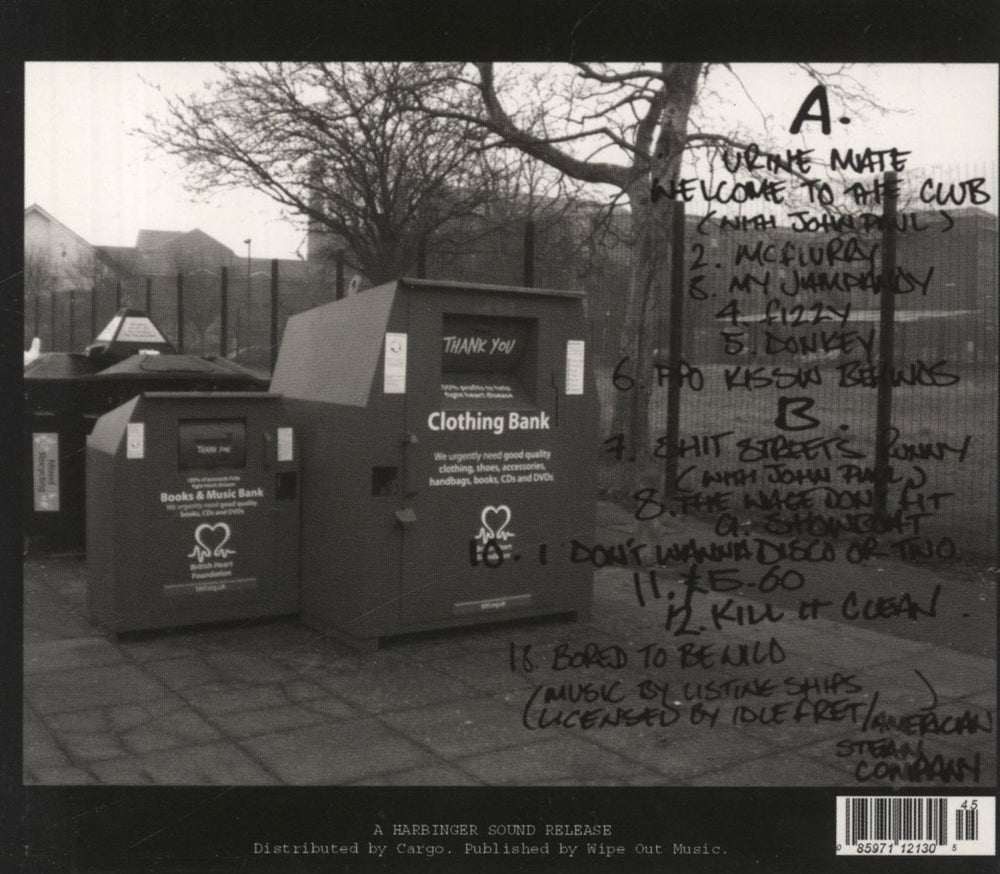 A.
URINE MATE
WELCOME TO THE CLUB
(WITH JOHN PAUL)
2. MCFLURRY
3. MY JAMPANDY
4. FIZZY
5. DONKEY
6. PPO KISSIN BEHINDS
B.
7. SHIT STREETS RUNNY
(WITH JOHN PAUL)
8. THE WAGE DON'T FIT
9. SHOWBOAT
10. I DON'T WANNA DISCO OR TWO
11. £5-60
12. KILL IT CLEAN
13. BORED TO BE WILD
(MUSIC BY LISTINE SHIPS)
(LICENSED BY IDLE FRET/AMERICAN
STEAM
COMPANY
THANK YOU
100% profits to help
fight heart disease
Clothing Bank
We urgently need good quality
clothing, shoes, accessories,
handbags, books, CDs and DVDs
bhf.org.uk
THANK YOU
100% of proceeds help
fight heart disease
Books & Music Bank
We urgently need good quality
books, CDs and DVDs
British Heart
Foundation
bhf.org.uk
Mixed
Recycling
A HARBINGER SOUND RELEASE
Distributed by Cargo. Published by Wipe Out Music.
45
0 85971 12130 5